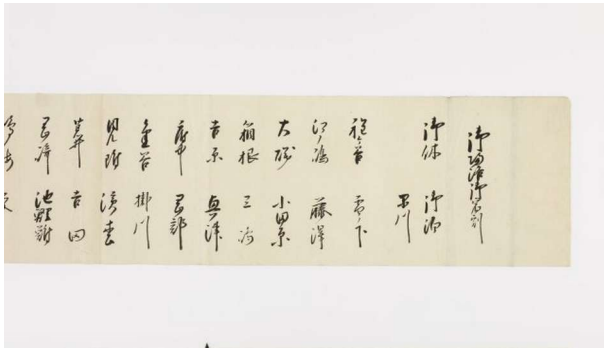 御帰洛御泊割
御休 御泊
品川
程ヶ谷 雪ノ下
江ノ嶋 藤澤
大磯 小田原
箱根 三嶋
吉原 興津
府中 岡部
金谷 掛川
見附 濱松
荒井 吉田
岡崎 池鯉鮒